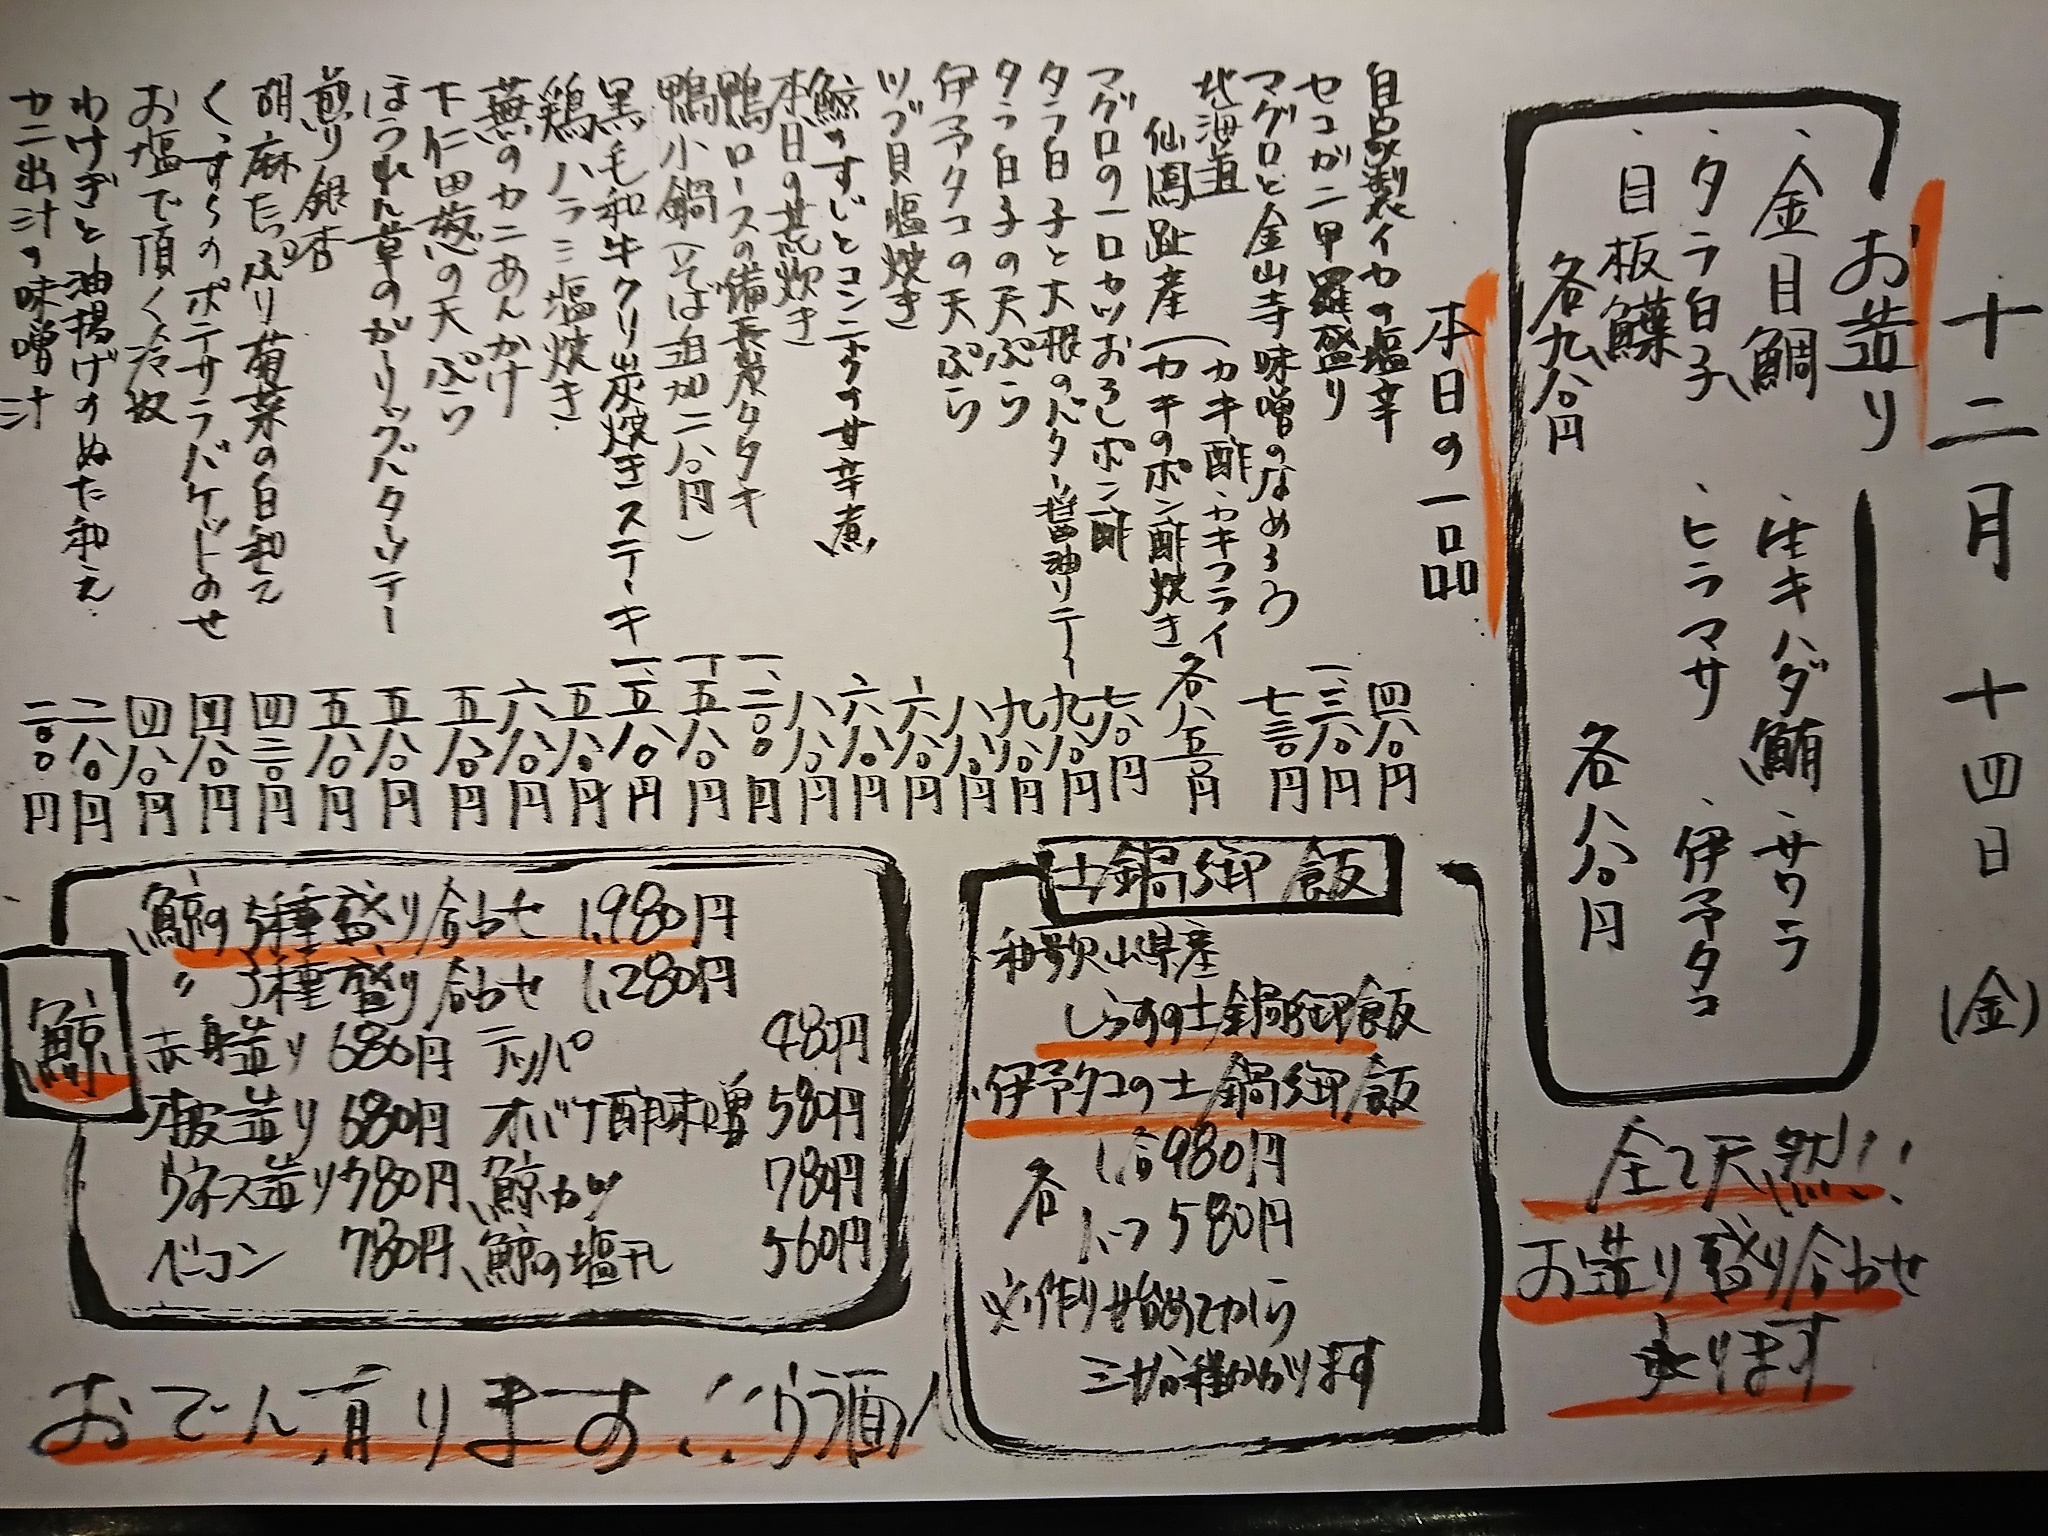 十二月 十四日 (金)
お造り
、金目鯛 、生キハダ鮪 、サワラ
、タラ白子 、ヒラマサ 、伊予タコ
、目板鰈
各九八〇円 各八八〇円
全て天然!!
お造り盛り合わせ
承ります
本日の一品
自家製イカの塩辛 四八〇円
セコガニ甲羅盛り 一、三八〇円
マグロと金山寺味噌のなめろう 七三〇円
北海道
仙鳳趾産 (カキ酢・カキフライ
(カキのポン酢焼き 各八五〇円
マグロの一口カツおろしポン酢 七八〇円
タラ白子と大根のバター醤油ソテー 九八〇円
タラ白子の天ぷら 九八〇円
伊予タコの天ぷら 八八〇円
ツブ貝塩焼き 六八〇円
鯨のすじとコンニャクの甘辛煮 六八〇円
本日の荒炊き 八八〇円
鴨ロースの備長炭タタキ 一、二〇〇円
鴨小鍋(そば追加二八〇円) 一、五八〇円
黒毛和牛クリ炭焼きステーキ 一、五八〇円
鶏ハラミ塩焼き 五八〇円
蕪のカニあんかけ 六八〇円
下仁田葱の天ぷら 五八〇円
ほうれん草のガーリックバターソテー 五八〇円
煎り銀杏 五八〇円
胡麻たっぷり菊菜の白和え 四三〇円
くっすらのポテサラバケットのせ 四八〇円
お塩で頂く冷奴 四八〇円
わけぎと油揚げのぬた和え 二八〇円
カニ出汁の味噌汁 二〇〇円
土鍋御飯
和歌山県産
しらすの土鍋御飯
、伊予タコの土鍋御飯
各 1合980円
ハーフ580円
※作り始めてから
三十分程かかります
鯨
鯨の5種盛り合わせ 1,980円
〃 3種盛り合わせ 1,280円
赤身造り 680円 テッパ 480円
本皮造り 680円 オバケ酢味噌 580円
ウネス造り 780円 鯨カツ 780円
ベーコン 780円 鯨の塩干し 560円
おでん有ります!!